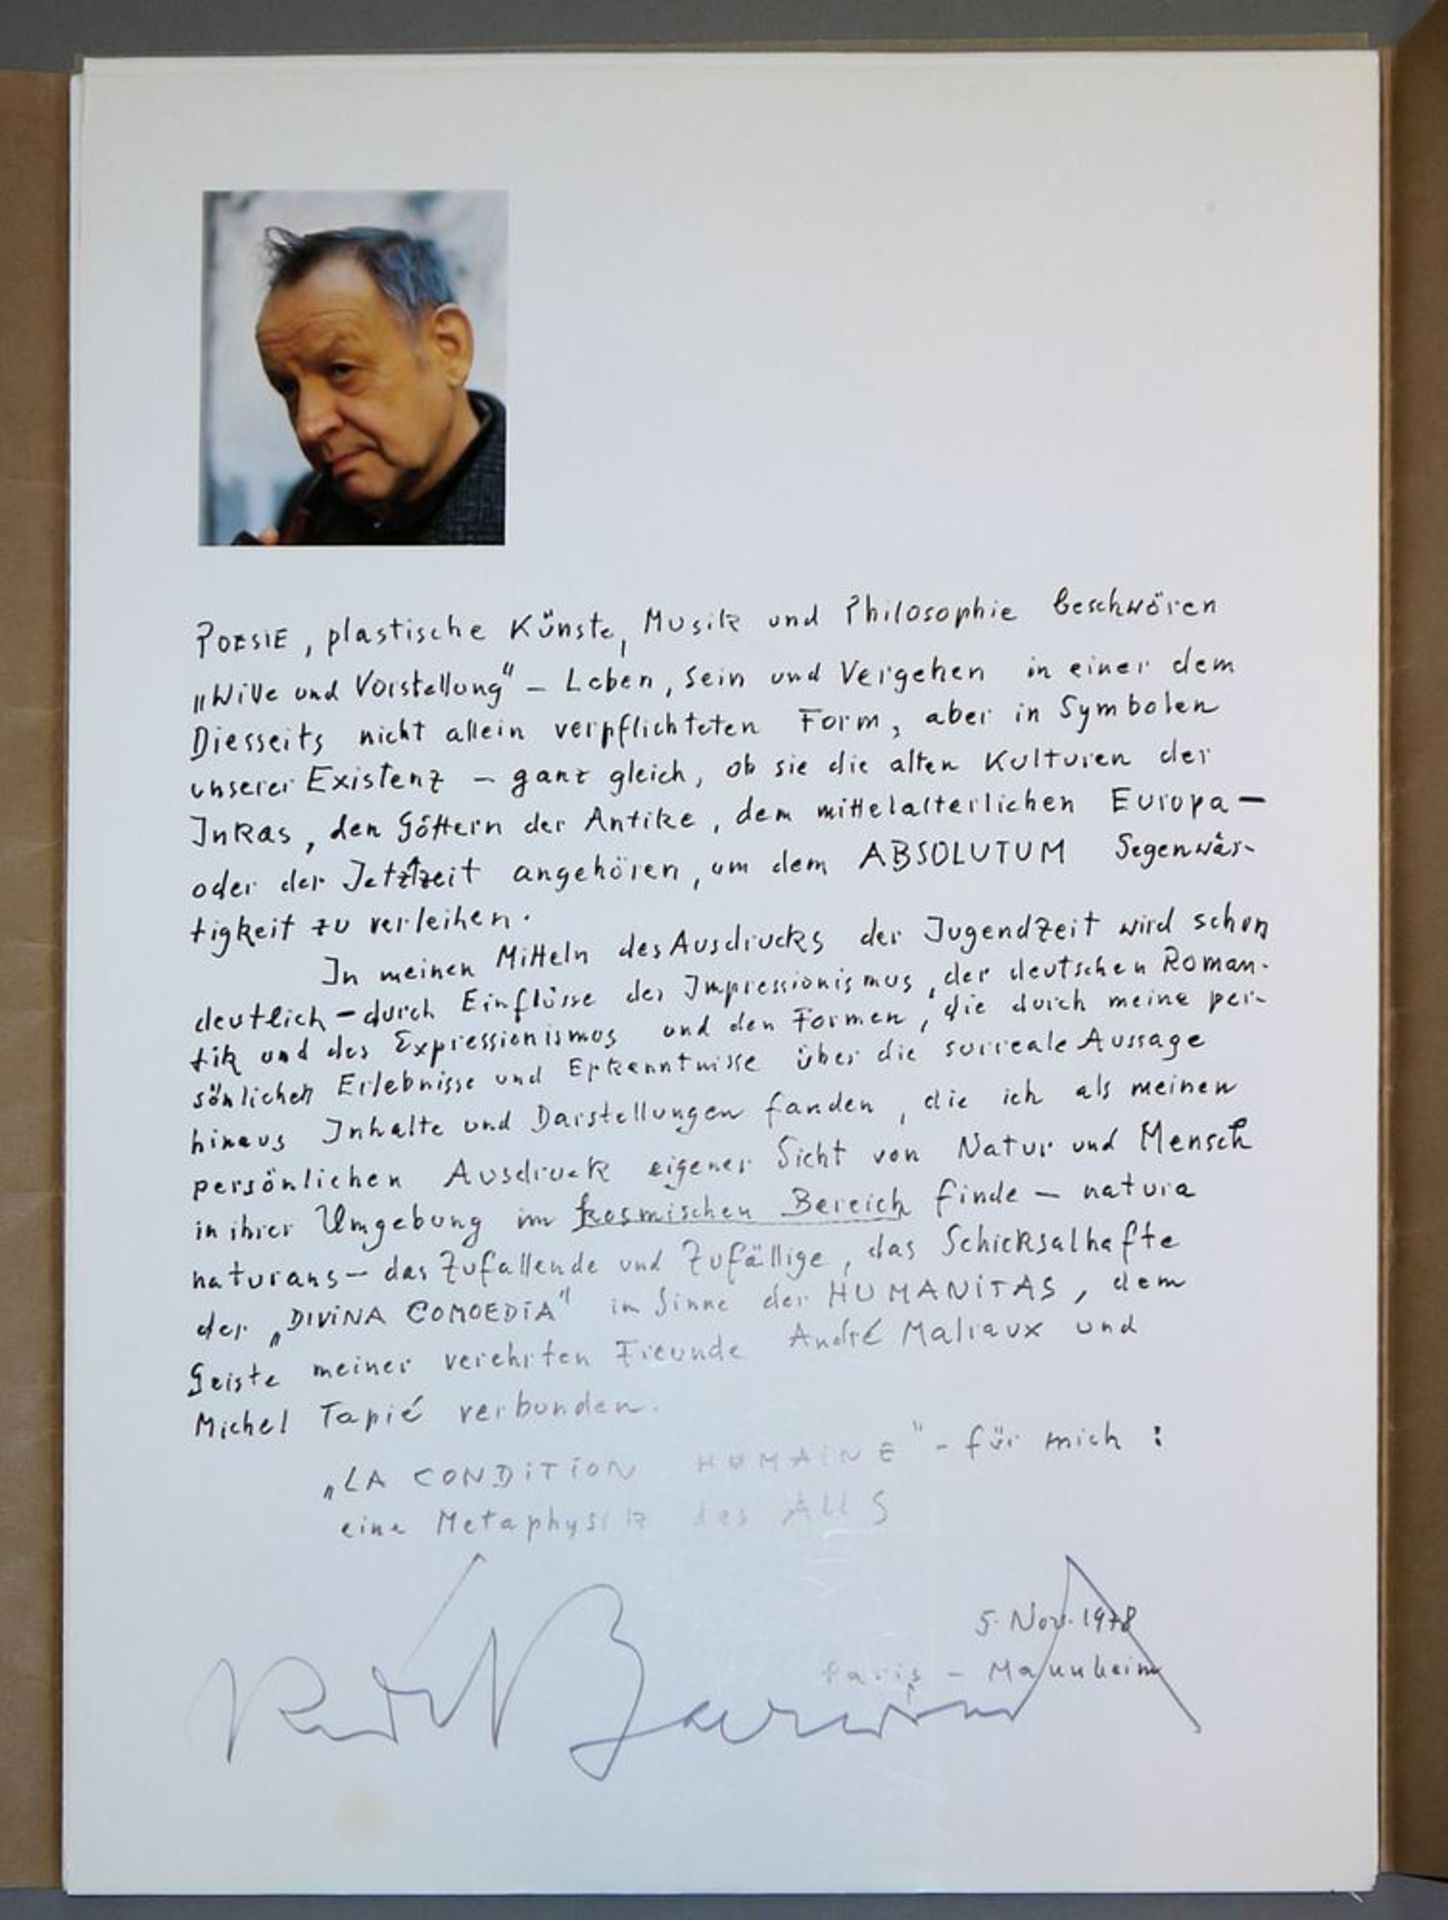 POESIE, plastische Künste, Musik und Philosophie beschwören
„Wille und Vorstellung" – Leben, Sein und Vergehen in einer dem
Diesseits nicht allein verpflichteten Form, aber in Symbolen
unserer Existenz – ganz gleich, ob sie die alten Kulturen der
Inkas, den Göttern der Antike, dem mittelalterlichen Europa –
oder der Jetztzeit angehören, um dem ABSOLUTUM Gegenwär-
tigkeit zu verleihen.
In meinen Mitteln des Ausdrucks der Jugendzeit wird schon
deutlich – durch Einflüsse des Impressionismus, der deutschen Roman-
tik und des Expressionismus und den Formen, die durch meine per-
sönlichen Erlebnisse und Erkenntnisse über die surreale Aussage
hinaus Inhalte und Darstellungen fanden, die ich als meinen
persönlichen Ausdruck eigener Sicht von Natur und Mensch
in ihrer Umgebung im kosmischen Bereich finde – natura
naturans – das Zufallende und Zufällige, das Schicksalhafte
der „DIVINA COMOEDIA" im Sinne der HUMANITAS, dem
Geiste meiner verehrten Freunde André Malraux und
Michel Tapié verbunden.
„LA CONDITION HUMAINE" – für mich :
eine Metaphysik des ALLS
5. Nov. 1978
Paris – Mannheim